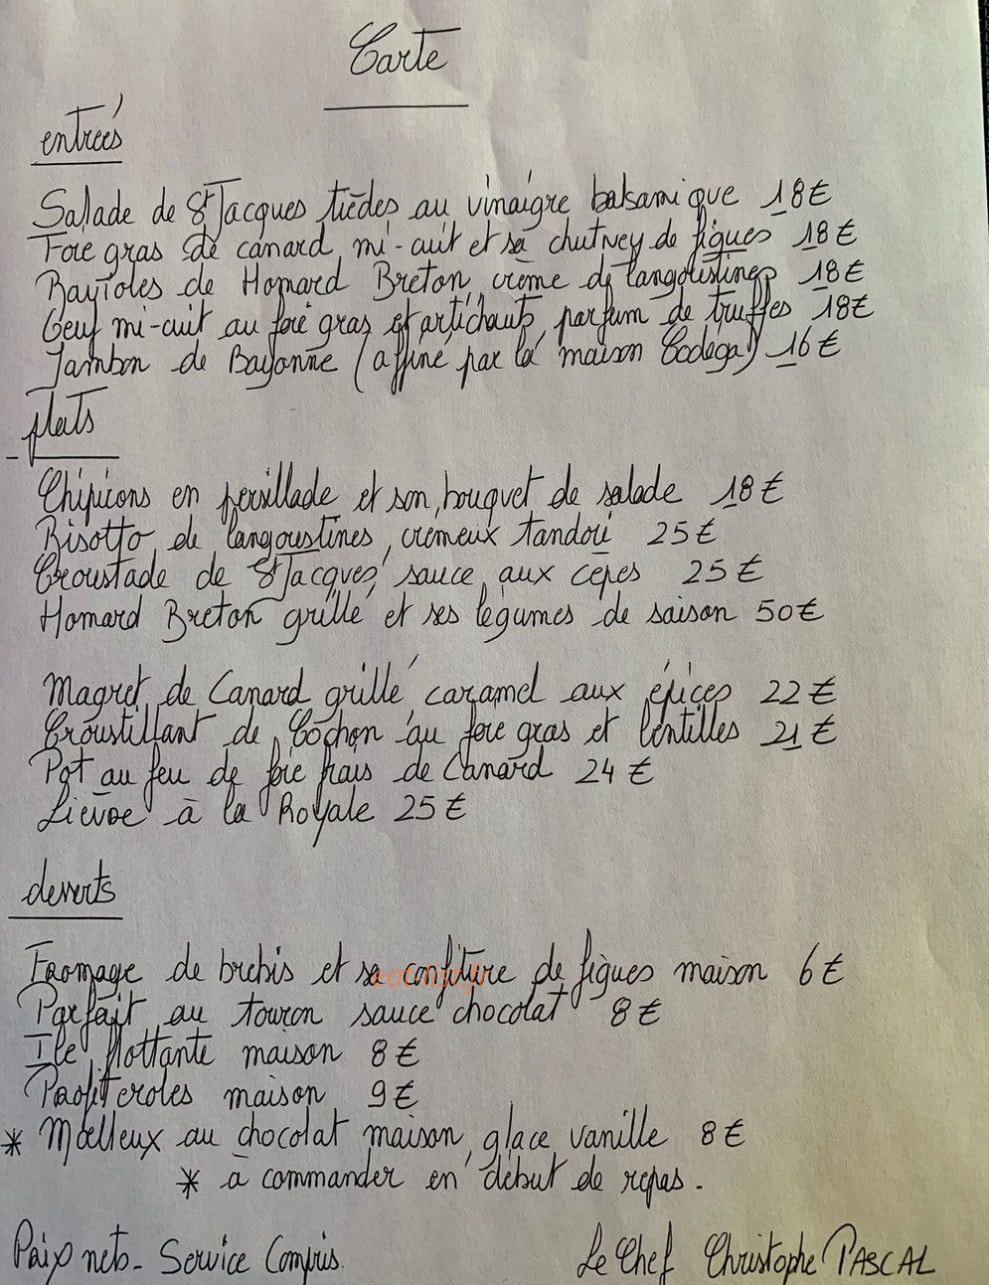 Carte
entrées
Salade de St Jacques tièdes au vinaigre balsamique 18€
Foie gras de canard mi-cuit et sa chutney de figues 18€
Ravioles de Homard Breton, crème de langoustines 18€
Oeuf mi-cuit au foie gras et artichauts, parfum de truffes 18€
Jambon de Bayonne (affiné par la maison Bodega) 16€
plats
Chipirons en persillade et son bouquet de salade 18€
Risotto de langoustines, crémeux tandori 25€
Croustade de St Jacques, sauce aux cèpes 25€
Homard Breton grillé et ses légumes de saison 50€
Magret de Canard grillé caramel aux épices 22€
Croustillant de Cochon au foie gras et lentilles 21€
Pot au feu de foie frais de Canard 24€
Lièvre à la Royale 25€
desserts
Fromage de brebis et sa confiture de figues maison 6€
Parfait au touron sauce chocolat 8€
Ile flottante maison 8€
Profiteroles maison 9€
* Moelleux au chocolat maison, glace vanille 8€
* à commander en début de repas.
Prix nets - Service Compris. Le Chef Christophe PASCAL